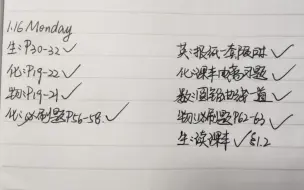 1.16 Monday
生:P30-32✓
化:P19-22✓
物:P19-21✓
化:必刷题P56-58.✓
英:报纸一套限时✓
化:课本内容习题✓
数:圆锥曲线一道✓
物:必刷题P62-63✓
生:读课本✓§1.2